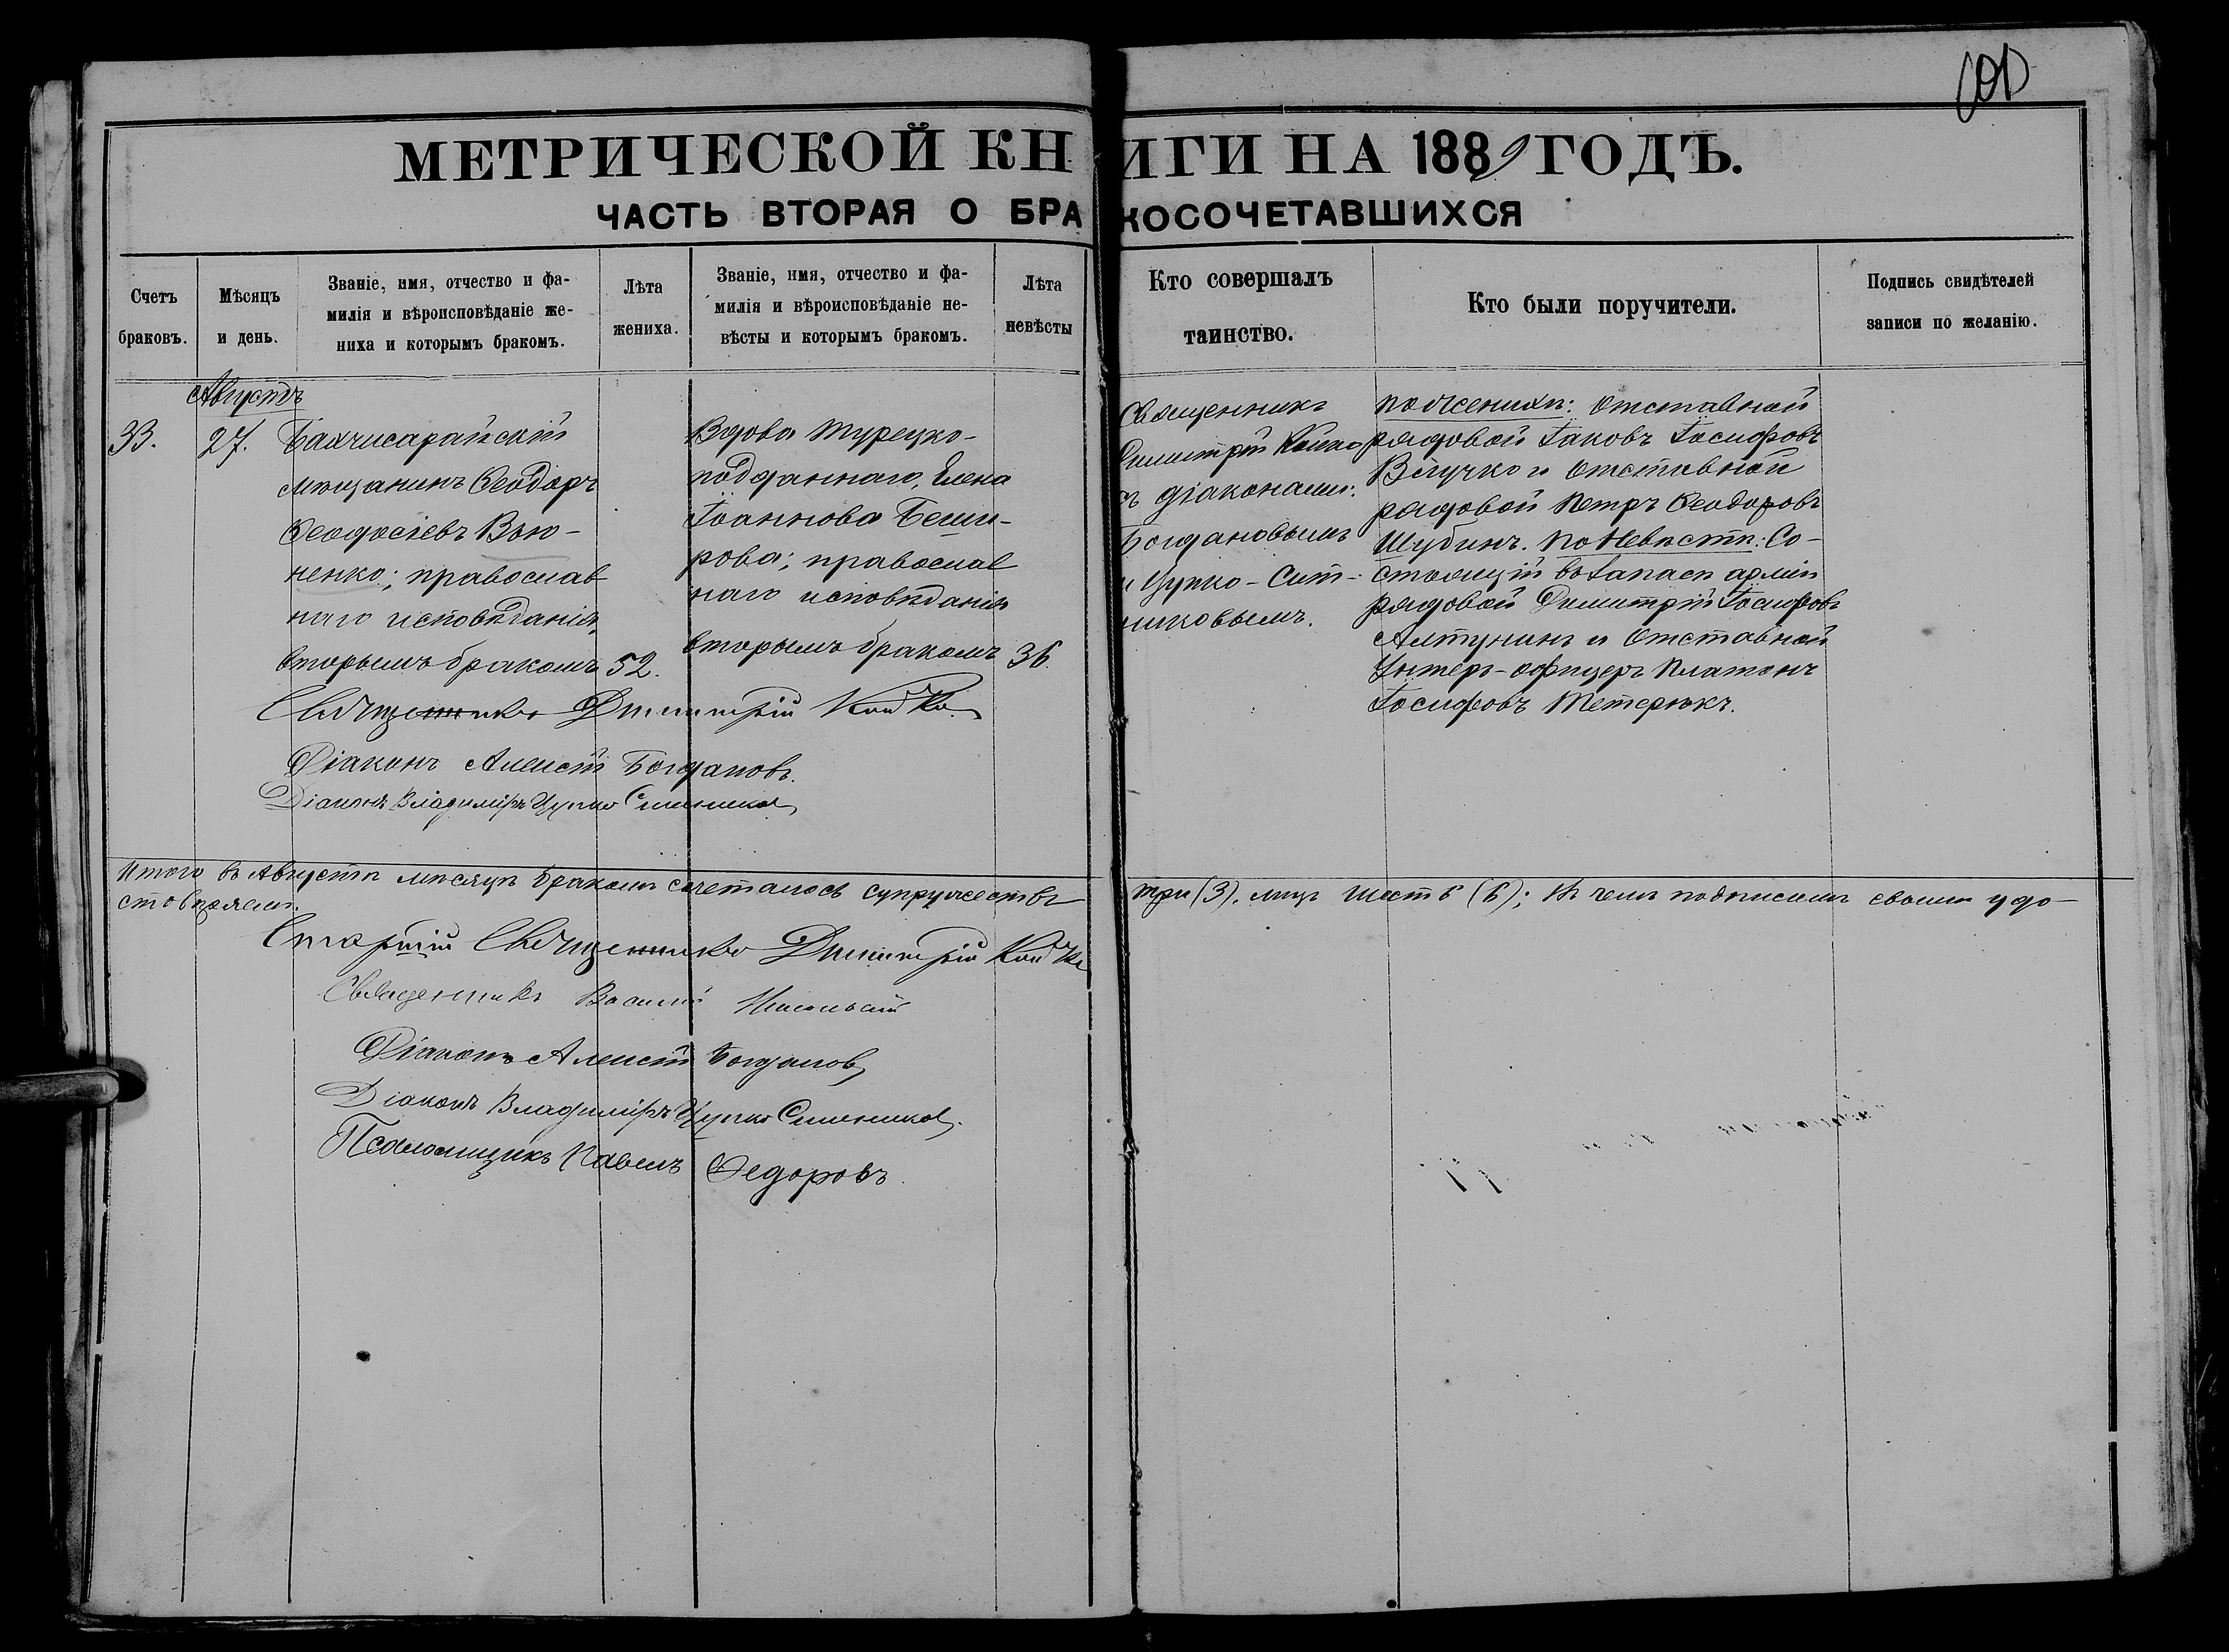 МЕТРИЧЕСКОЙ КНИГИ НА 1889 ГОДЪ.
ЧАСТЬ ВТОРАЯ О БРАКОСОЧЕТАВШИХСЯ
Счетъ
браковъ.
Мѣсяцъ
и день.
Званіе, имя, отчество и фа-
милія и вѣроисповѣданіе же-
ниха и которымъ бракомъ.
Лѣта
жениха.
Званіе, имя, отчество и фа-
милія и вѣроисповѣданіе не-
вѣсты и которымъ бракомъ.
Лѣта
невѣсты
Кто совершалъ
таинство.
Кто были поручители.
Подпись свидѣтелей
записи по желанію.
Августъ
33.
27.
Бахчисарайскій
мѣщанинъ Ѳеодоръ
Ѳеодосіевъ Вью-
ненко; православ
наго исповѣданія,
вторымъ бракомъ
52.
Вдова турецко-
подданнаго, Елена
Іоаннова Беши-
рова; православ
наго исповѣданія
вторымъ бракомъ
36.
Священникъ
Димитрій Койко
съ діаконами:
Богдановымъ
и Цупко-Сит-
никовымъ.
по женихѣ: отставной
рядовой Іаковъ Іосифовъ
и отставной
рядовой Петръ Ѳеодоровъ
Шубинъ. по невѣстѣ: Со-
стоящій въ запасѣ арміи
рядовой Димитрій Іосифовъ
Алтунинъ и отставной
Унтеръ-офицеръ Платонъ
Іосифовъ Тетерюкъ.
Священникъ Димитрій Койко
Діаконъ Алексій Богдановъ.
Діаконъ Владиміръ Цупко Ситников
Итого въ Августѣ мѣсяцѣ бракомъ сочеталось супружествъ три (3), лицъ шесть (6); въ чемъ подписями своими удо-
стовѣряемъ.
Старшій Священникъ Димитрій Койко
Священникъ Василій
Діаконъ Алексій Богданов
Діаконъ Владиміръ Цупко Ситников.
Псаломщикъ Павелъ Ѳедоровъ